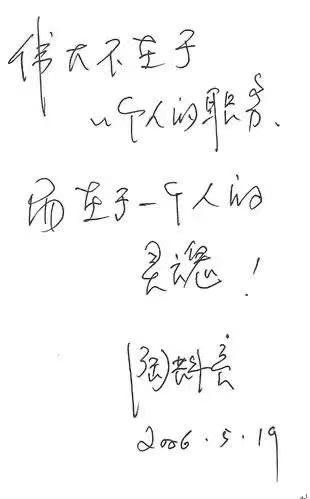 伟大不在于
一个人的职务、
而在于一个人的
灵魂！
陶斯亮
2006.5.19